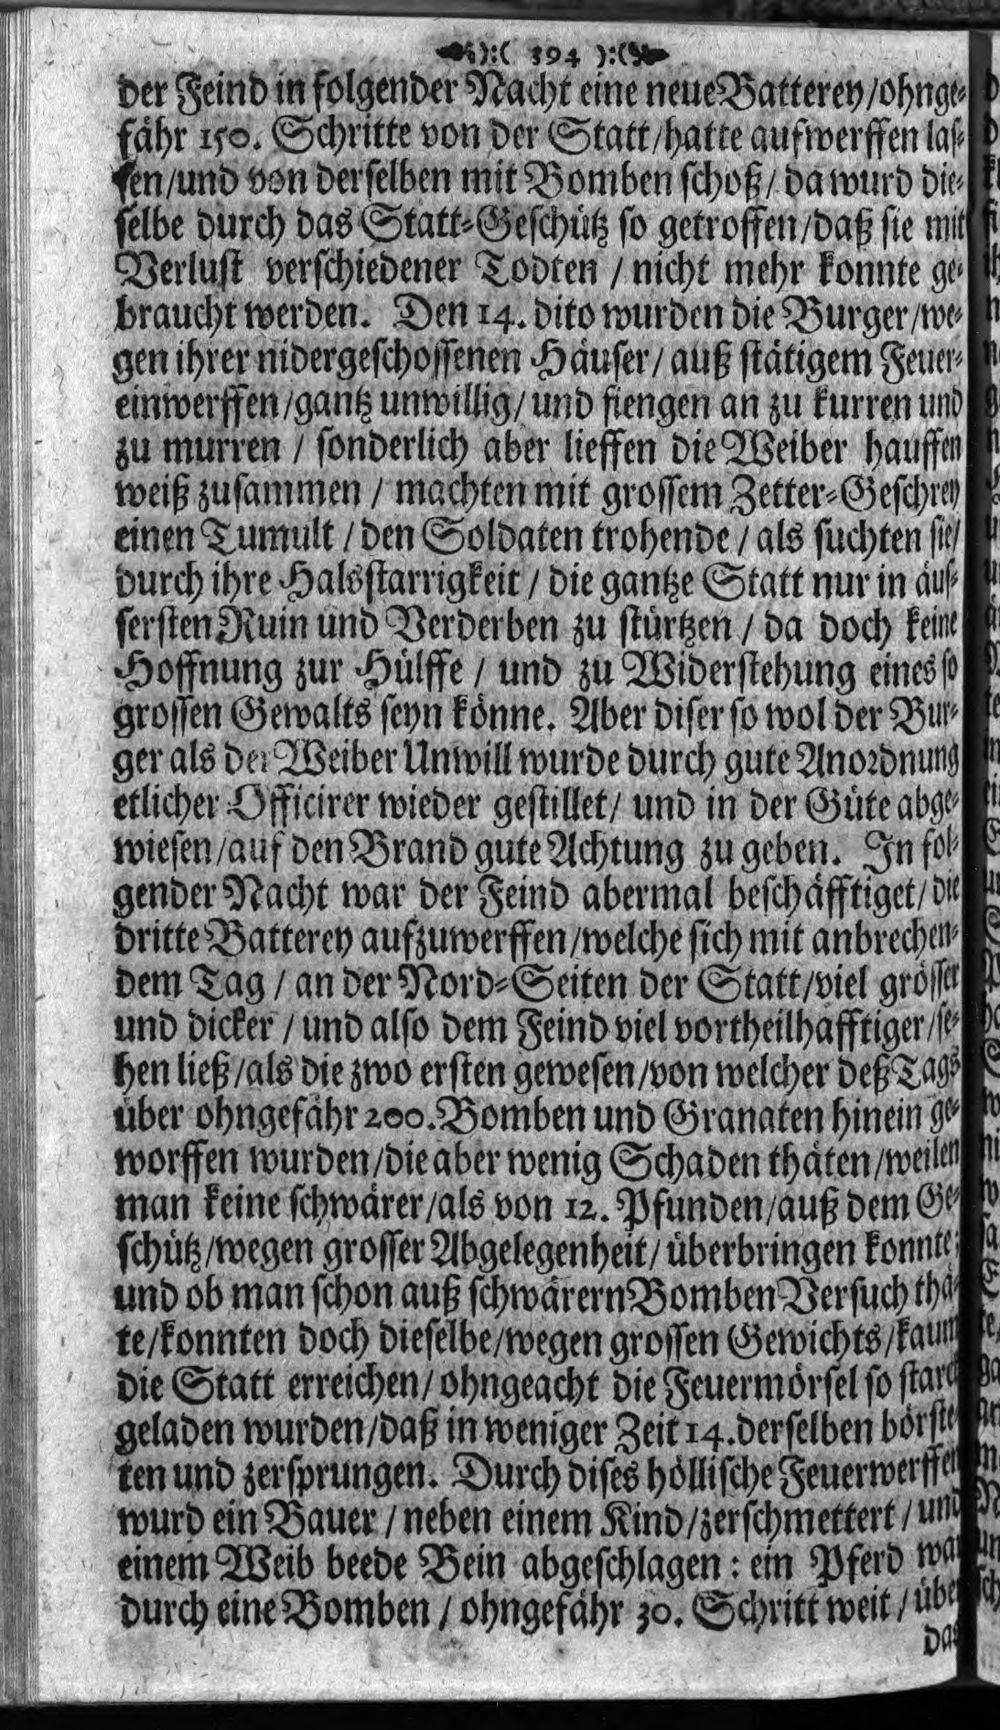 ):( 394 ):(
der Feind in folgender Nacht eine neue Batterey/ohnge-
fähr 150. Schritte von der Statt/hatte aufwerffen las-
sen/und von derselben mit Bomben schoß/ da wurd die-
selbe durch das Statt-Geschütz so getroffen/daß sie mit
Verlust verschiedener Todten / nicht mehr konnte ge-
braucht werden. Den 14. dito wurden die Burger/we-
gen ihrer nidergeschossenen Häuser/ auß stätigem Feuer-
einwerffen/gantz unwillig/ und fiengen an zu kurren und
zu murren / sonderlich aber lieffen die Weiber hauffen
weiß zusammen / machten mit grossem Zetter-Geschrey
einen Tumult / den Soldaten trohende / als suchten sie/
durch ihre Halsstarrigkeit / die gantze Statt nur in äus-
sersten Ruin und Verderben zu stürtzen / da doch keine
Hoffnung zur Hülffe / und zu Widerstehung eines so
grossen Gewalts seyn könne. Aber diser so wol der Bur-
ger als der Weiber Unwill wurde durch gute Anordnung
etlicher Officirer wieder gestillet/ und in der Güte abge-
wiesen/auf den Brand gute Achtung zu geben. In fol-
gender Nacht war der Feind abermal beschäfftiget/ die
dritte Batterey aufzuwerffen/welche sich mit anbrechen-
dem Tag / an der Nord-Seiten der Statt/viel grösser
und dicker / und also dem Feind viel vortheilhafftiger/se-
hen ließ/als die zwo ersten gewesen/von welcher deß Tags
über ohngefähr 200. Bomben und Granaten hinein ge-
worffen wurden/die aber wenig Schaden thäten/weilen
man keine schwärer/als von 12. Pfunden/auß dem Ge-
schütz/wegen grosser Abgelegenheit/ überbringen konnte;
und ob man schon auß schwärern Bomben Versuch thä-
te/konnten doch dieselbe/wegen grossen Gewichts/kaum
die Statt erreichen/ ohngeacht die Feuermörsel so starck
geladen wurden/daß in weniger Zeit 14. derselben börste-
ten und zersprungen. Durch dises höllische Feuerwerffen
wurd ein Bauer / neben einem Kind/zerschmettert / und
einem Weib beede Bein abgeschlagen : ein Pferd war
durch eine Bomben / ohngefähr 30. Schritt weit / über
das